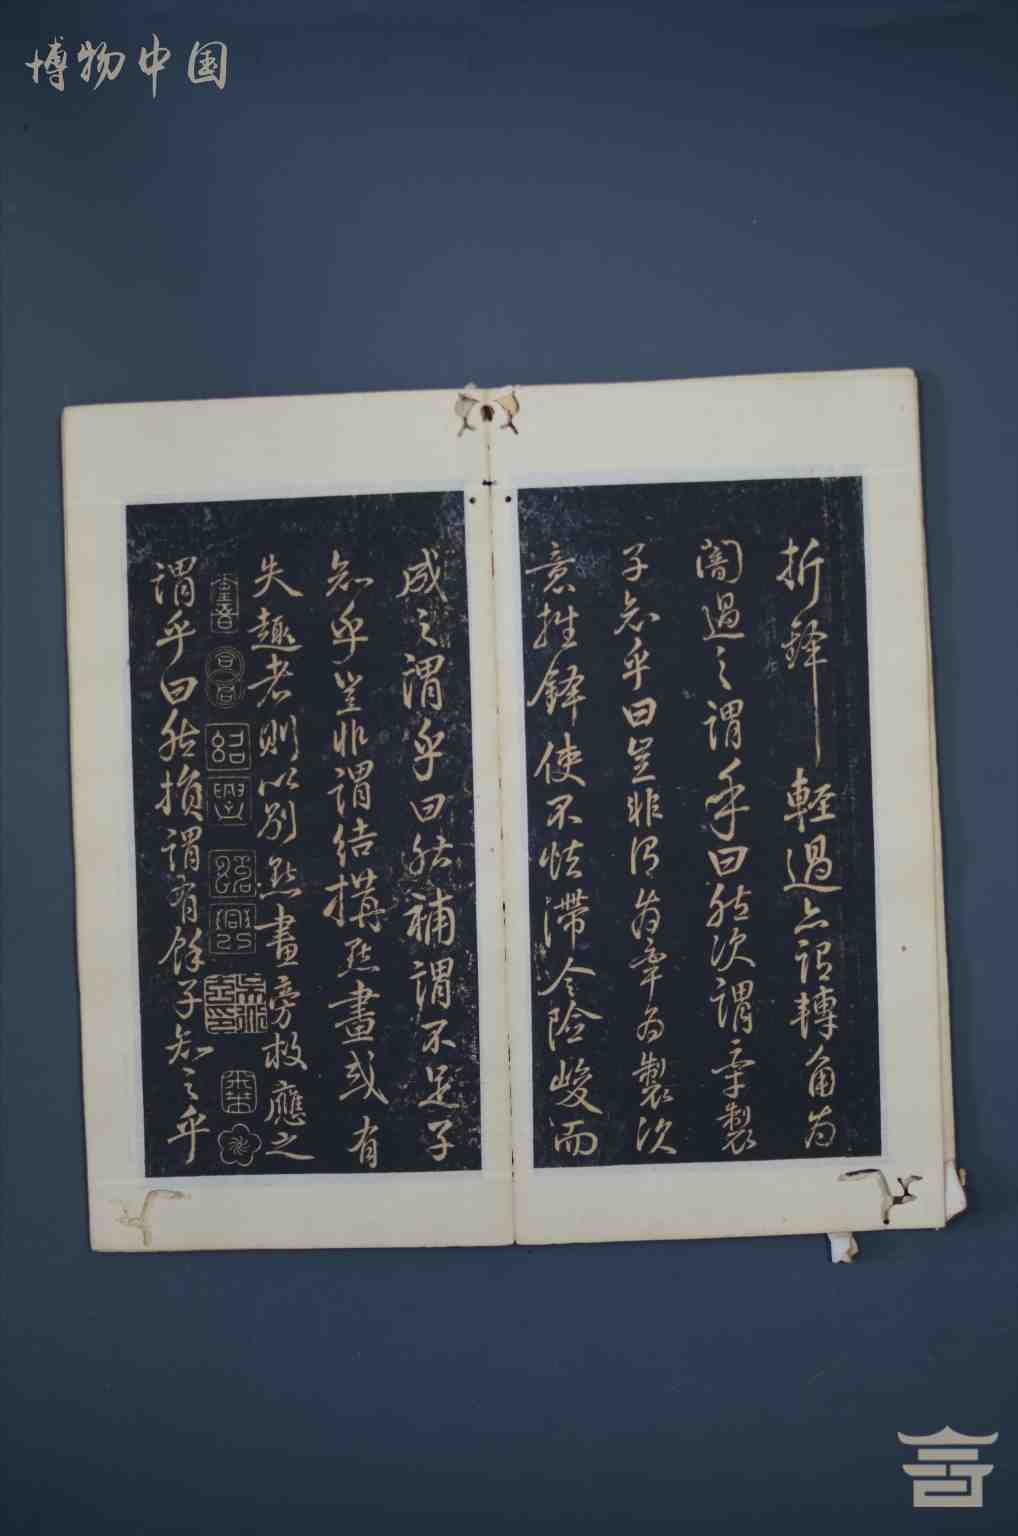 博物中国
折鋒輕過亦謂轉角為
闇過之謂乎曰然次謂牽製
子知乎曰豈非謂為牽為製次
意挫鋒使不怯滯令險峻而
成之謂乎曰然補謂不足子
知乎豈非謂結構點畫或有
失趣者則以別點畫旁救應之
紹興
謂乎曰然損謂有餘子知之乎